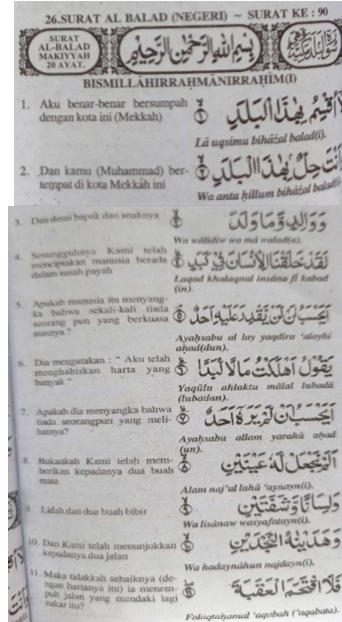 26.SURAT AL BALAD (NEGERI) ~ SURAT KE : 90
SURAT
AL-BALAD
MAKIYYAH
20 AYAT.
بِسْمِ اللهِ الرَّحْمٰنِ الرَّحِيْمِ
BISMILLÂHIRRAHMÂNIRRAHÎM(I)
1. Aku benar-benar bersumpah
dengan kota ini (Mekkah)
لَآ اُقْسِمُ بِهٰذَا الْبَلَدِ
Lâ uqsimu bihâżal balad(i).
2. Dan kamu (Muhammad) ber-
tempat di kota Mekkah ini
وَاَنْتَ حِلٌّ بِهٰذَا الْبَلَدِ
Wa anta hillum bihâżal balad(i).
3. Dan demi bapak dan anaknya
وَوَالِدٍ وَّمَا وَلَدَ
Wa wâlidiw wa mâ walad(a).
4. Sesungguhnya Kami telah
menciptakan manusia berada
dalam susah payah
لَقَدْ خَلَقْنَا الْاِنْسَانَ فِيْ كَبَدٍ
Laqad khalaqnal insâna fî kabad
(in).
5. Apakah manusia itu menyang-
ka bahwa sekali-kali tiada
seorang pun yang berkuasa
atasnya ?
اَيَحْسَبُ اَنْ لَّنْ يَّقْدِرَ عَلَيْهِ اَحَدٌ
Ayahsabu al lay yaqdira 'alayhi
ahad(dun).
6. Dia mengatakan : " Aku telah
menghabiskan harta yang
banyak "
يَقُوْلُ اَهْلَكْتُ مَالًا لُّبَدًا
Yaqûlu ahlaktu mâlal lubadâ
(lubadan).
7. Apakah dia menyangka bahwa
tiada seorangpun yang meli-
hatnya?
اَيَحْسَبُ اَنْ لَّمْ يَرَهٗٓ اَحَدٌ
Ayahsabu allam yarahû ahad
(un).
8. Bukankah Kami telah mem-
berikan kepadanya dua buah
mata
اَلَمْ نَجْعَلْ لَّهٗ عَيْنَيْنِ
Alam naj'al lahû 'aynayn(i).
9. Lidah dan dua buah bibir
وَلِسَانًا وَّشَفَتَيْنِ
Wa lisânaw wasyafatayn(i).
10. Dan Kami telah menunjukkan
kepadanya dua jalan
وَهَدَيْنٰهُ النَّجْدَيْنِ
Wa hadaynâhun najdayn(i).
11. Maka tidakkah sebaiknya (de-
ngan hartanya itu) ia menem-
puh jalan yang mendaki lagi
sukar itu?
فَلَا اقْتَحَمَ الْعَقَبَةَ
Falaqtahamal 'aqabah ('aqabata).